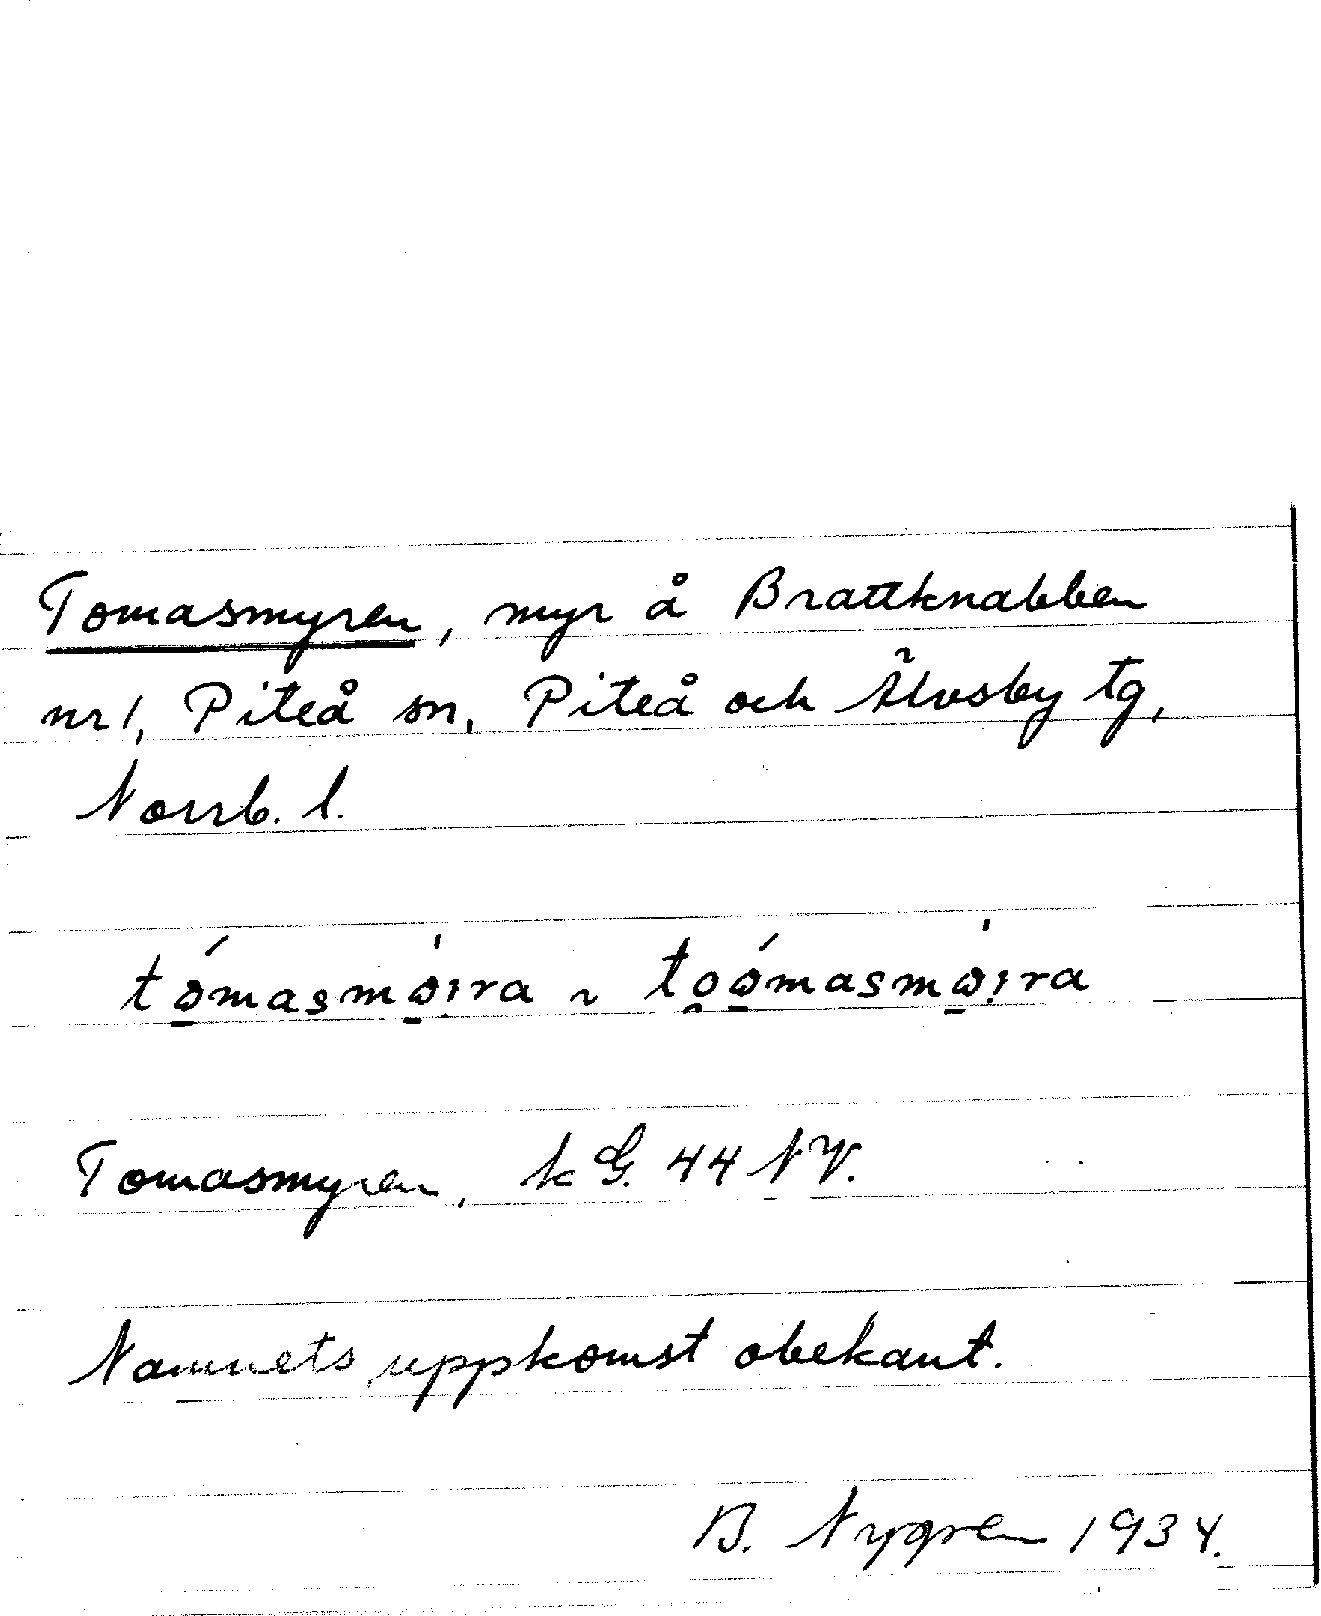 Tomasmyren, myr å Brattknabben
nr 1, Piteå sn, Piteå och Älvsby tg,
Norrb. l.
Tomasmyren, k G. 44 NV.
Namnets uppkomst obekant.
B. Nygren 1934.